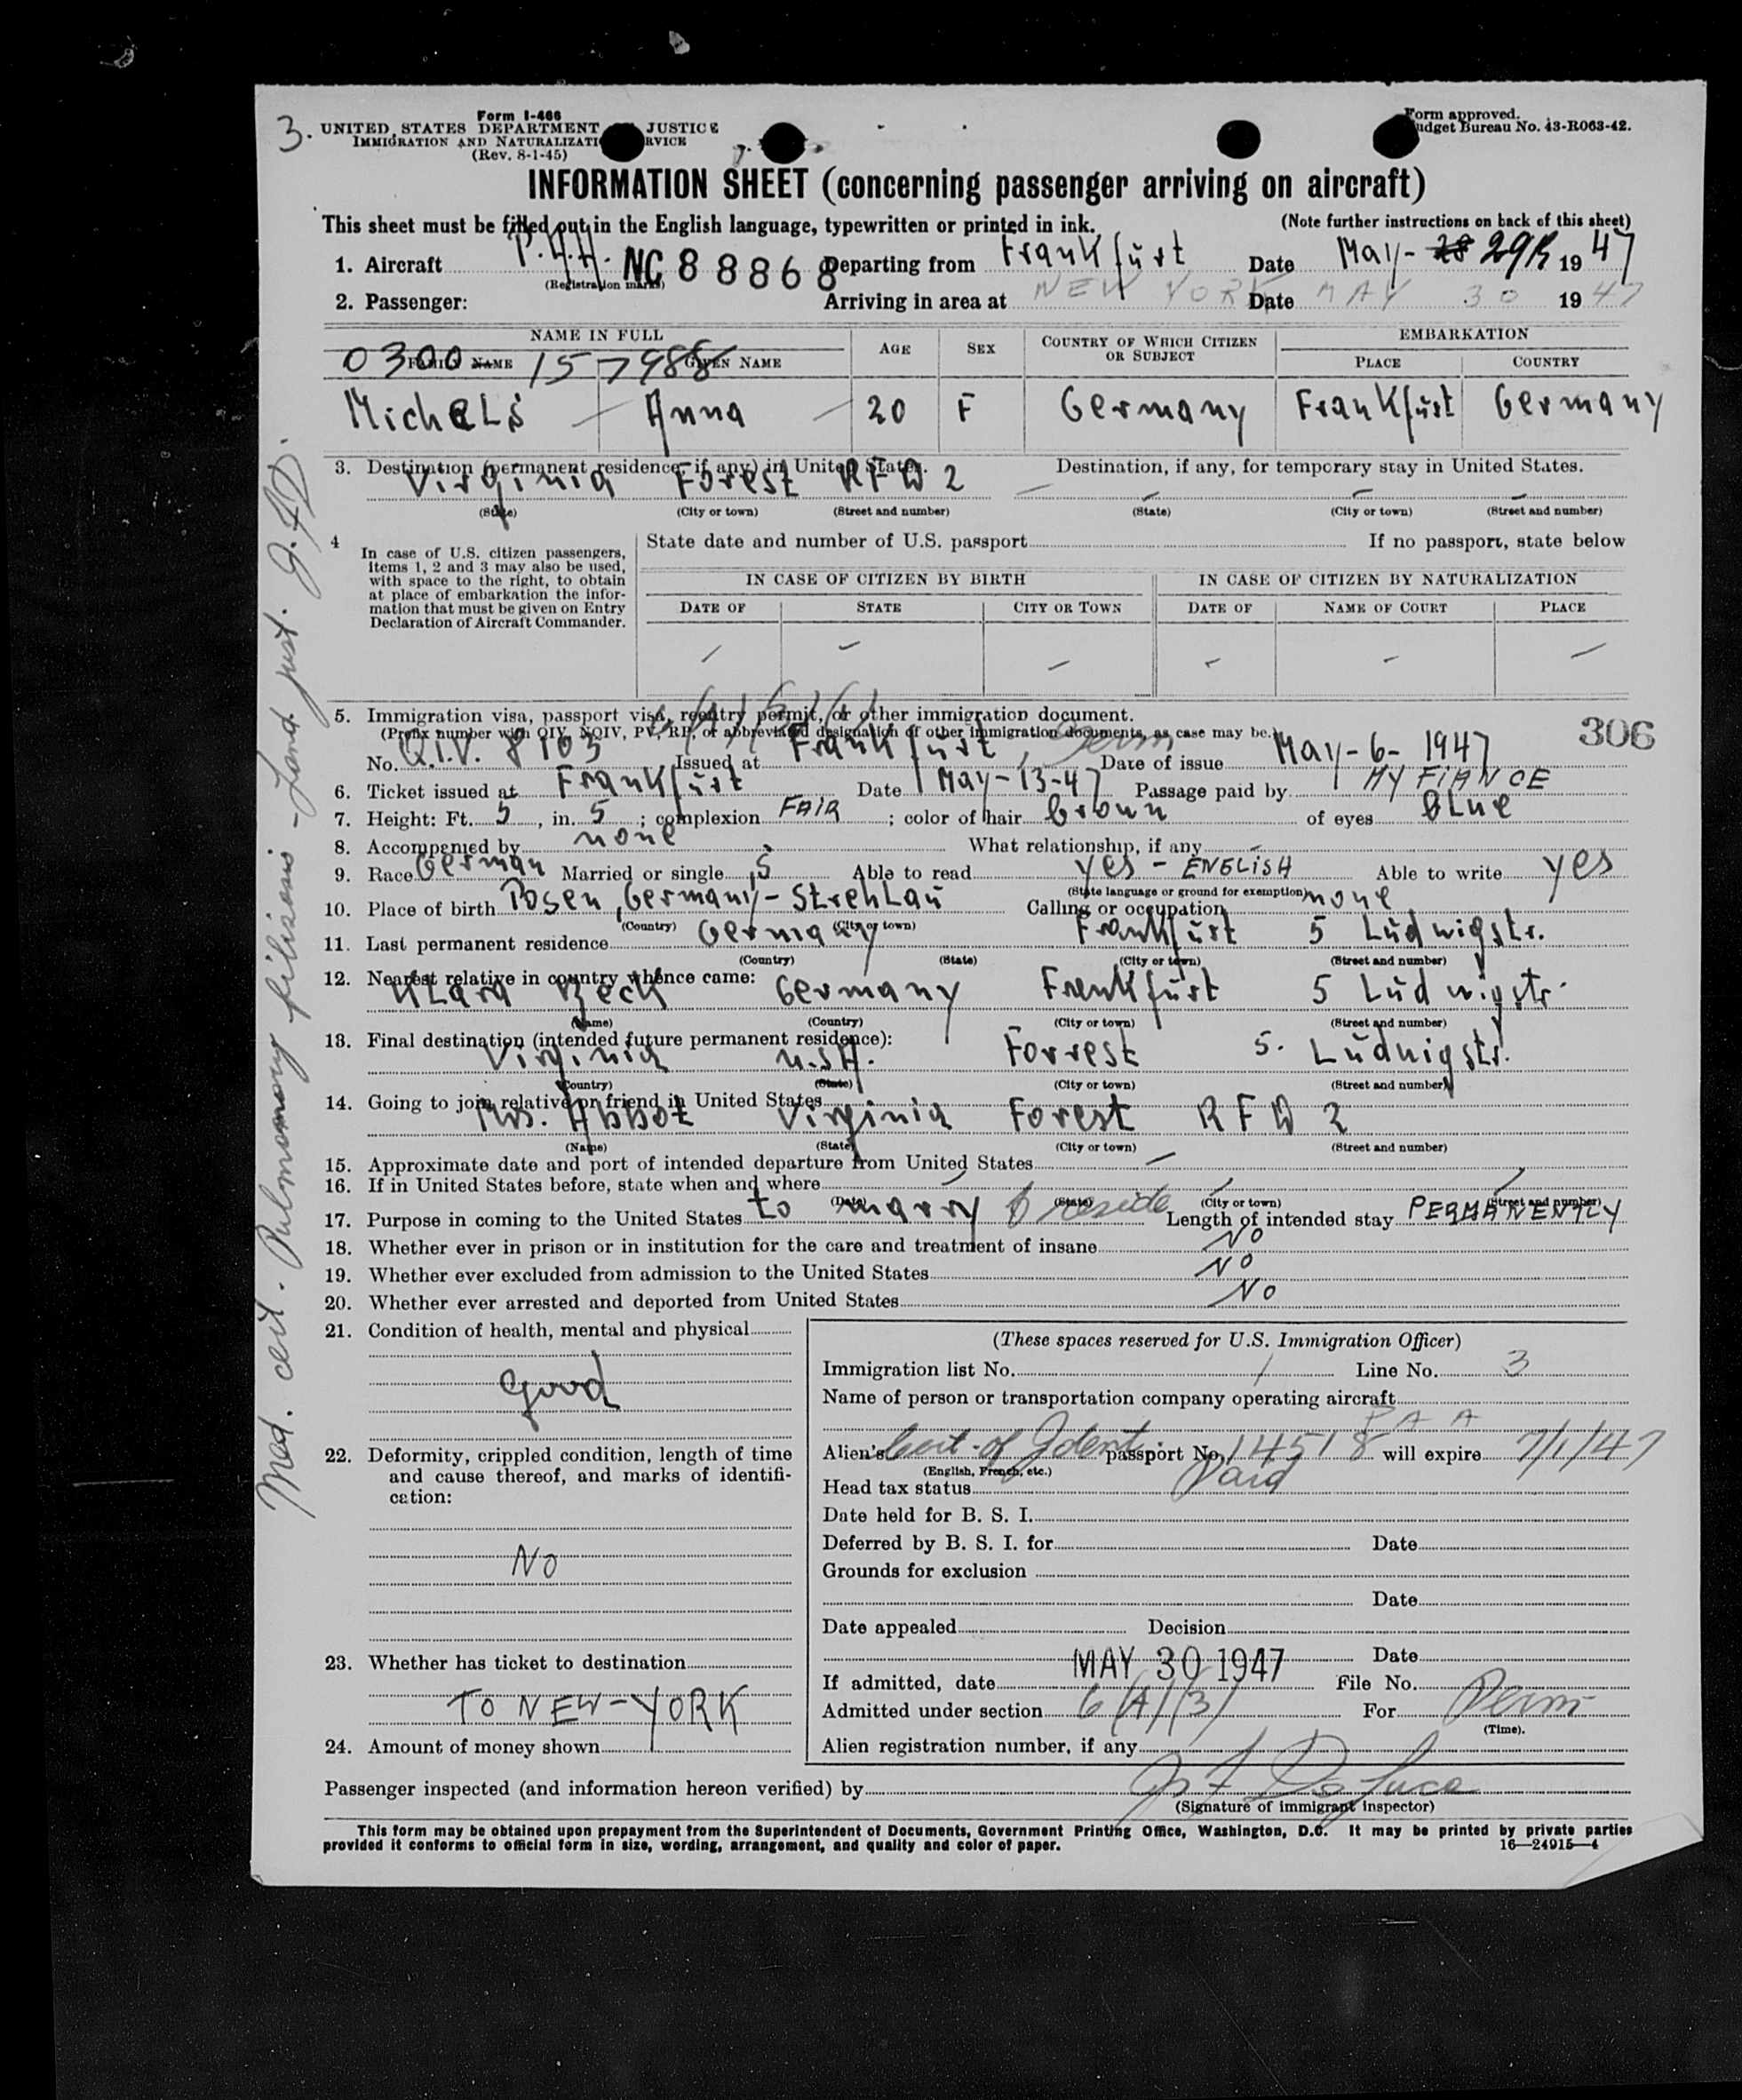 3.
Form I-466
UNITED STATES DEPARTMENT JUSTICE
IMMIGRATION AND NATURALIZATI RVICE
(Rev. 8-1-45)
Form approved.
udget Bureau No. 43-R063-42.
INFORMATION SHEET (concerning passenger arriving on aircraft)
This sheet must be filled out in the English language, typewritten or printed in ink. (Note further instructions on back of this sheet)
1. Aircraft P.A.A. NC 88868 Departing from Frankfurt Date May - 28 29 1947
(Registration marks)
2. Passenger: Arriving in area at NEW YORK Date MAY 30 1947
NAME IN FULL AGE SEX COUNTRY OF WHICH CITIZEN OR SUBJECT EMBARKATION
FAMILY NAME GIVEN NAME PLACE COUNTRY
0300 15-7988
Michels Anna 20 F Germany Frankfurt Germany
3. Destination (permanent residence, if any) in United States. Destination, if any, for temporary stay in United States.
Virginia Forest RFD 2 — — — —
(State) (City or town) (Street and number) (State) (City or town) (Street and number)
4 In case of U.S. citizen passengers, items 1, 2 and 3 may also be used, with space to the right, to obtain at place of embarkation the information that must be given on Entry Declaration of Aircraft Commander.
State date and number of U.S. passport If no passport, state below
IN CASE OF CITIZEN BY BIRTH IN CASE OF CITIZEN BY NATURALIZATION
DATE OF STATE CITY OR TOWN DATE OF NAME OF COURT PLACE
— — — — — —
5. Immigration visa, passport visa, reentry permit, or other immigration document.
(Prefix number with QIV, NQIV, PV, RP, or abbreviated designation of other immigration documents, as case may be.)
306
No. Q.I.V. 8103 Issued at Frankfurt, Germ Date of issue May-6-1947
6. Ticket issued at Frankfurt Date May-13-47 Passage paid by MY FIANCE
7. Height: Ft. 5, in. 5; complexion FAIR; color of hair brown of eyes blue
8. Accompanied by none What relationship, if any —
9. Race German Married or single S Able to read yes - ENGLISH Able to write yes
(State language or ground for exemption)
10. Place of birth Posen, Germany - Strehlau Calling or occupation none
(Country) (City or town)
11. Last permanent residence Germany Frankfurt 5 Ludwigstr.
(Country) (State) (City or town) (Street and number)
12. Nearest relative in country whence came:
Klara Beck Germany Frankfurt 5 Ludwigstr.
(Name) (Country) (City or town) (Street and number)
13. Final destination (intended future permanent residence):
Virginia U.S.A. Forrest 5. Ludwigstr.
(Country) (State) (City or town) (Street and number)
14. Going to join relative or friend in United States
Mrs. Abbot Virginia Forest RFD 2
(Name) (State) (City or town) (Street and number)
15. Approximate date and port of intended departure from United States —
16. If in United States before, state when and where
(Date) (State) (City or town) (Street and number)
17. Purpose in coming to the United States to marry & reside Length of intended stay PERMANENTLY
18. Whether ever in prison or in institution for the care and treatment of insane No
19. Whether ever excluded from admission to the United States No
20. Whether ever arrested and deported from United States No
21. Condition of health, mental and physical
good
22. Deformity, crippled condition, length of time and cause thereof, and marks of identification:
No
23. Whether has ticket to destination
TO NEW-YORK
24. Amount of money shown
(These spaces reserved for U.S. Immigration Officer)
Immigration list No. 1 Line No. 3
Name of person or transportation company operating aircraft
P A A
Alien's Cert. of Ident. passport No. 14518 will expire 7/1/47
(English, French, etc.)
Head tax status Paid
Date held for B. S. I.
Deferred by B. S. I. for Date
Grounds for exclusion
Date
Date appealed Decision
Date
If admitted, date MAY 30 1947 File No.
Admitted under section 6(A)(3) For Perm
(Time).
Alien registration number, if any
Passenger inspected (and information hereon verified) by
(Signature of immigrant inspector)
This form may be obtained upon prepayment from the Superintendent of Documents, Government Printing Office, Washington, D.C. It may be printed by private parties
provided it conforms to official form in size, wording, arrangement, and quality and color of paper. 16—24915-4
Med. cert. Pulmonary